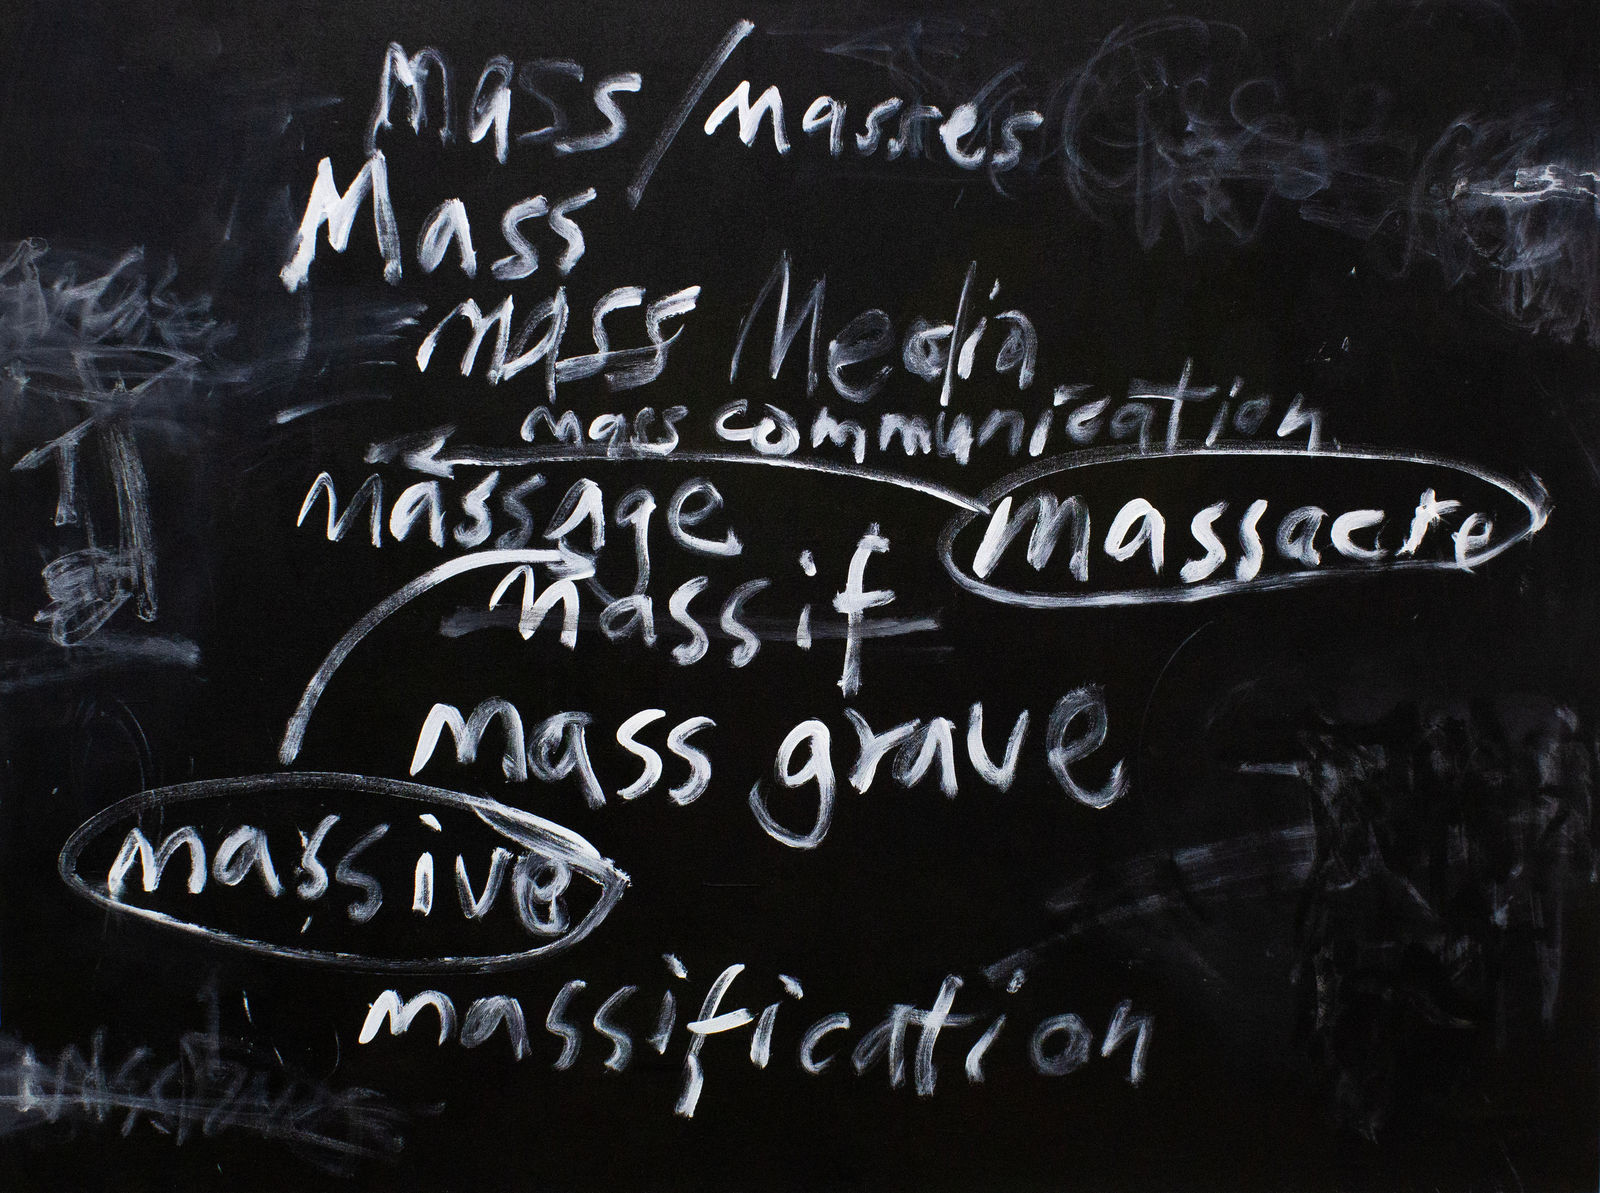 mass/masses
Mass
mass Media
mass communication
massage massacre
massif
mass grave
massive
massification